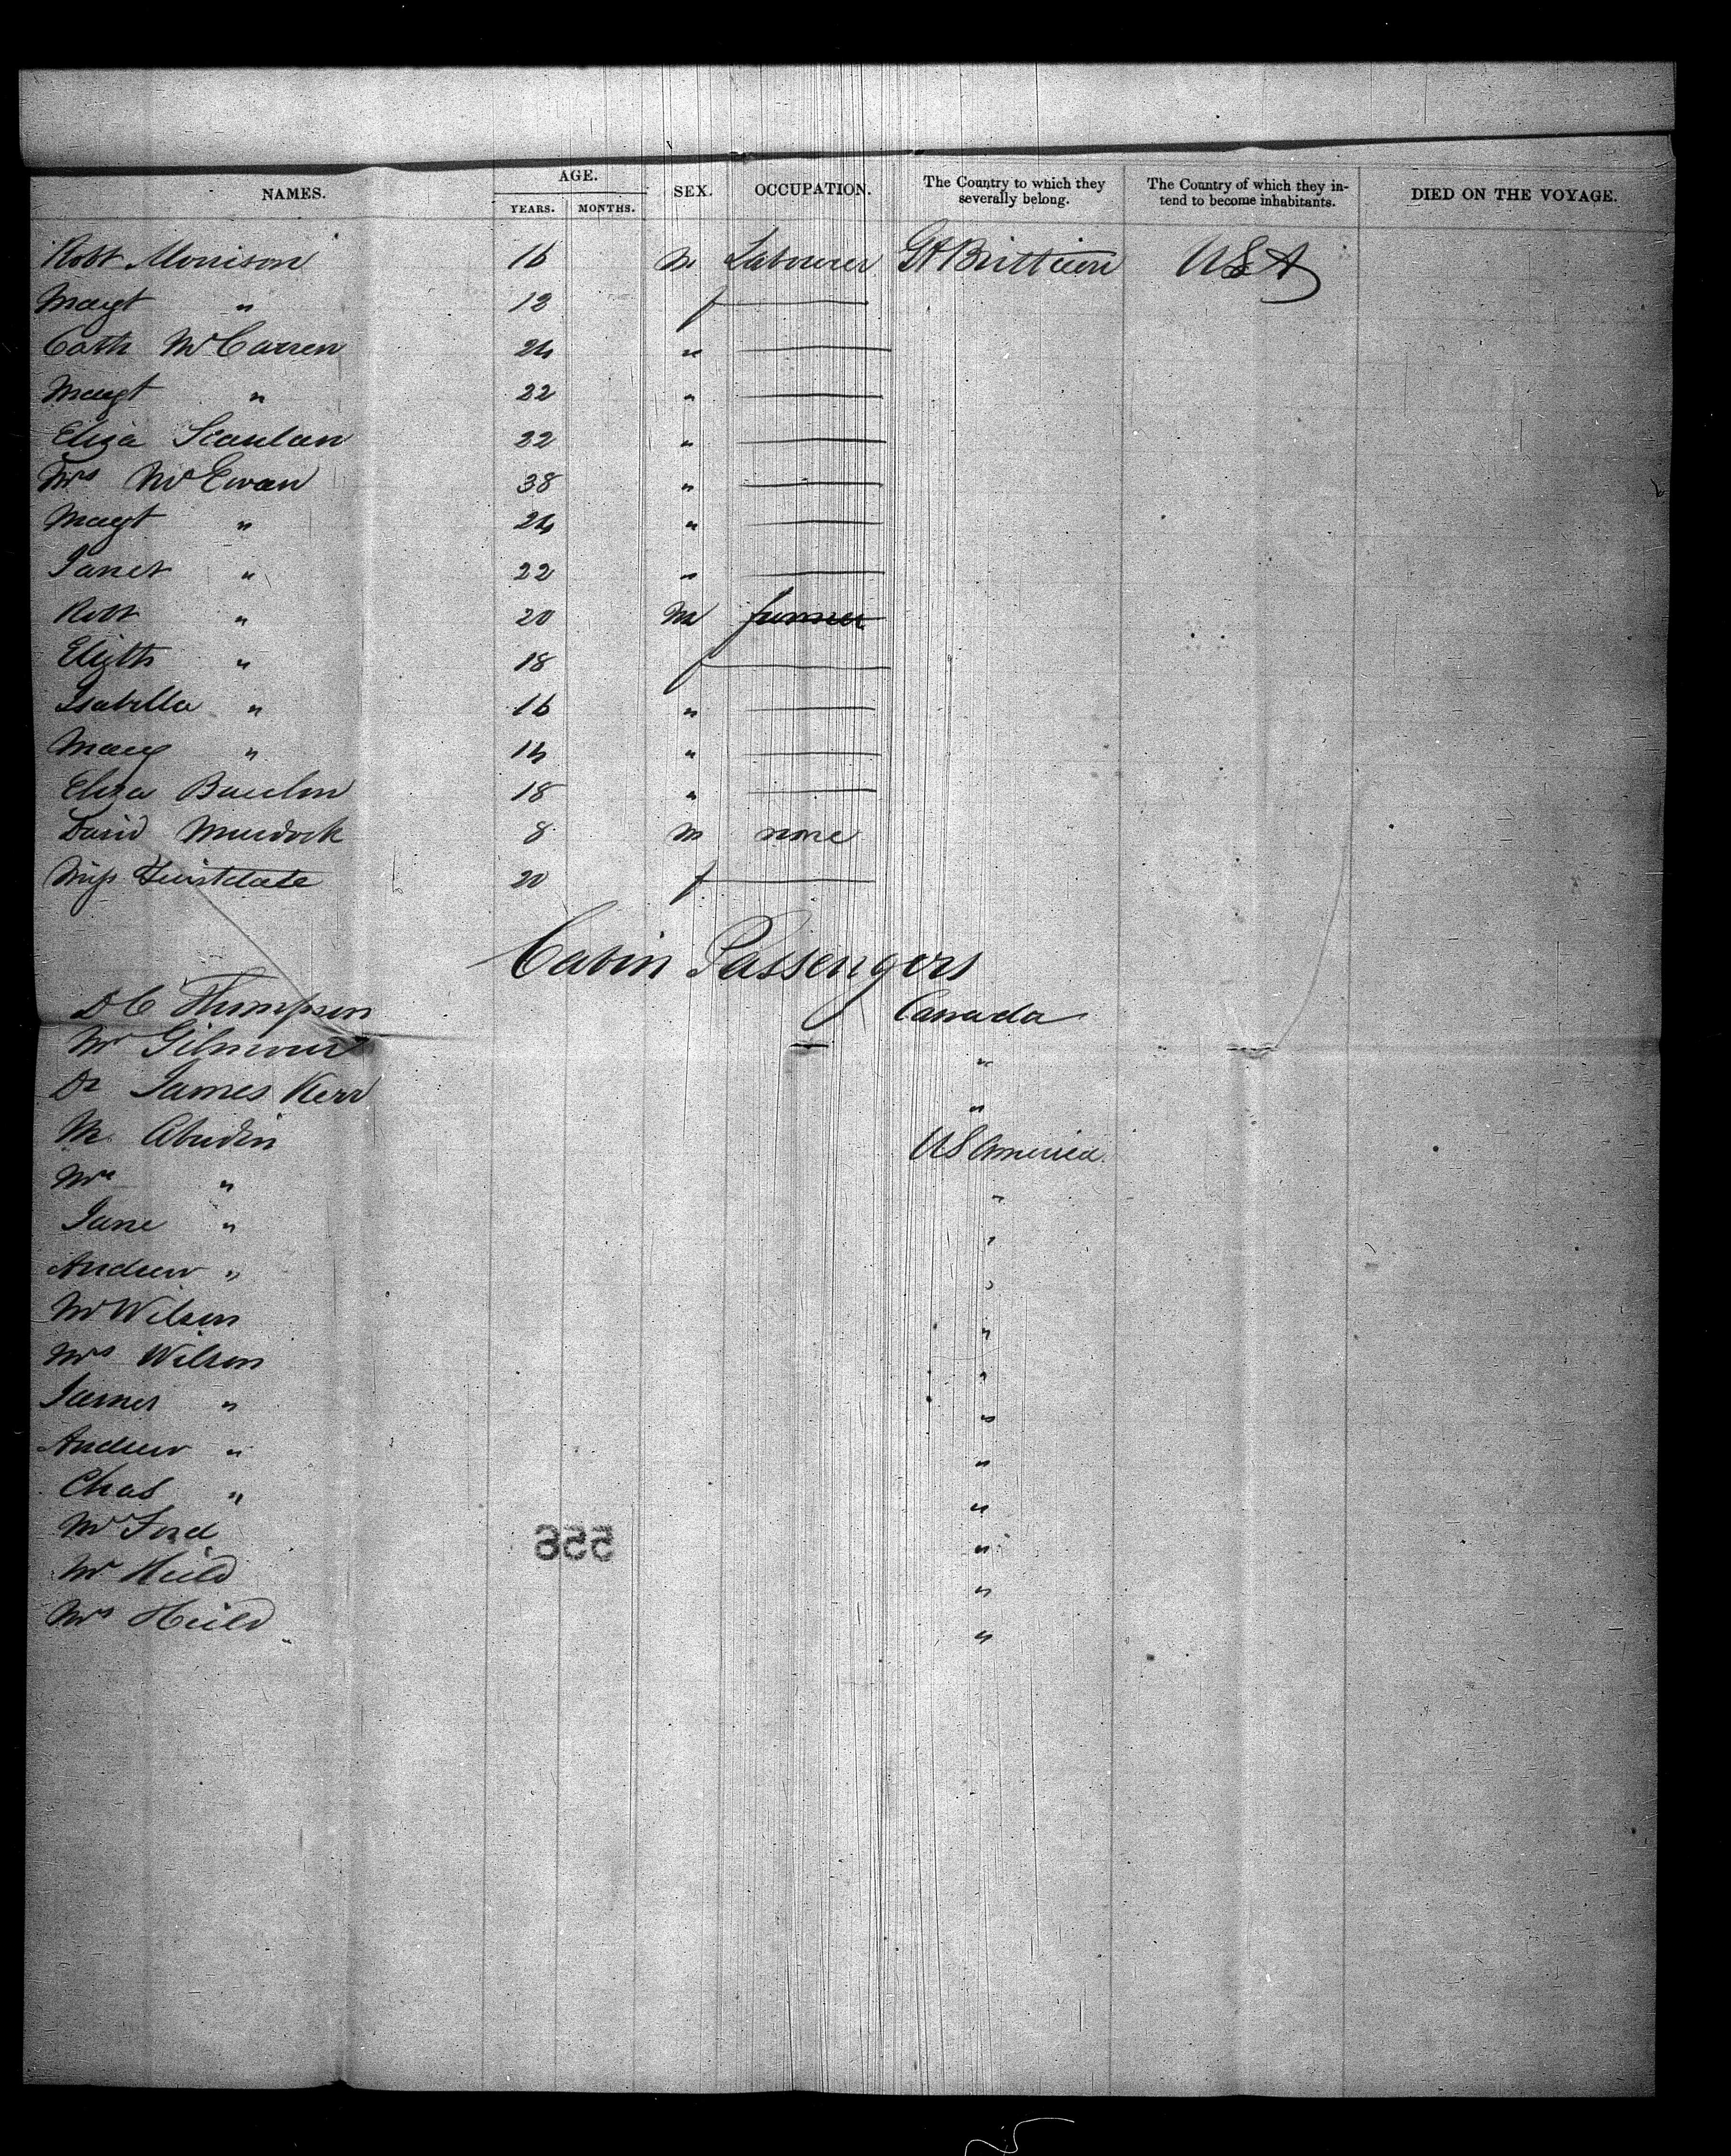 NAMES. AGE. YEARS. MONTHS. SEX. OCCUPATION. The Country to which they severally belong. The Country of which they intend to become inhabitants. DIED ON THE VOYAGE.
Robt Morrison 16 m Labourer Gt Brittian USA
Magt " 12 f
Cath McCarren 24 "
Magt " 22 "
Eliza Scanlan 22 "
Mrs McEwan 38 "
Magt " 24 "
Janet " 22 "
Robt " 20 M farmer
Elizth " 18 f
Isabella " 16 "
Mary " 14 "
Eliza 18 "
David Murdock 8 m none
Miss 20 f
Cabin Passengers
D C Thompson Canada
Mr Gilmour "
Dr James Kerr "
Mr US America
Mrs " "
Jane " "
Andrew " "
Mr Wilson "
Mrs Wilson "
James " "
Andrew " "
Chas " "
Mr Ford "
Mr Heild "
Mrs Heild "
556